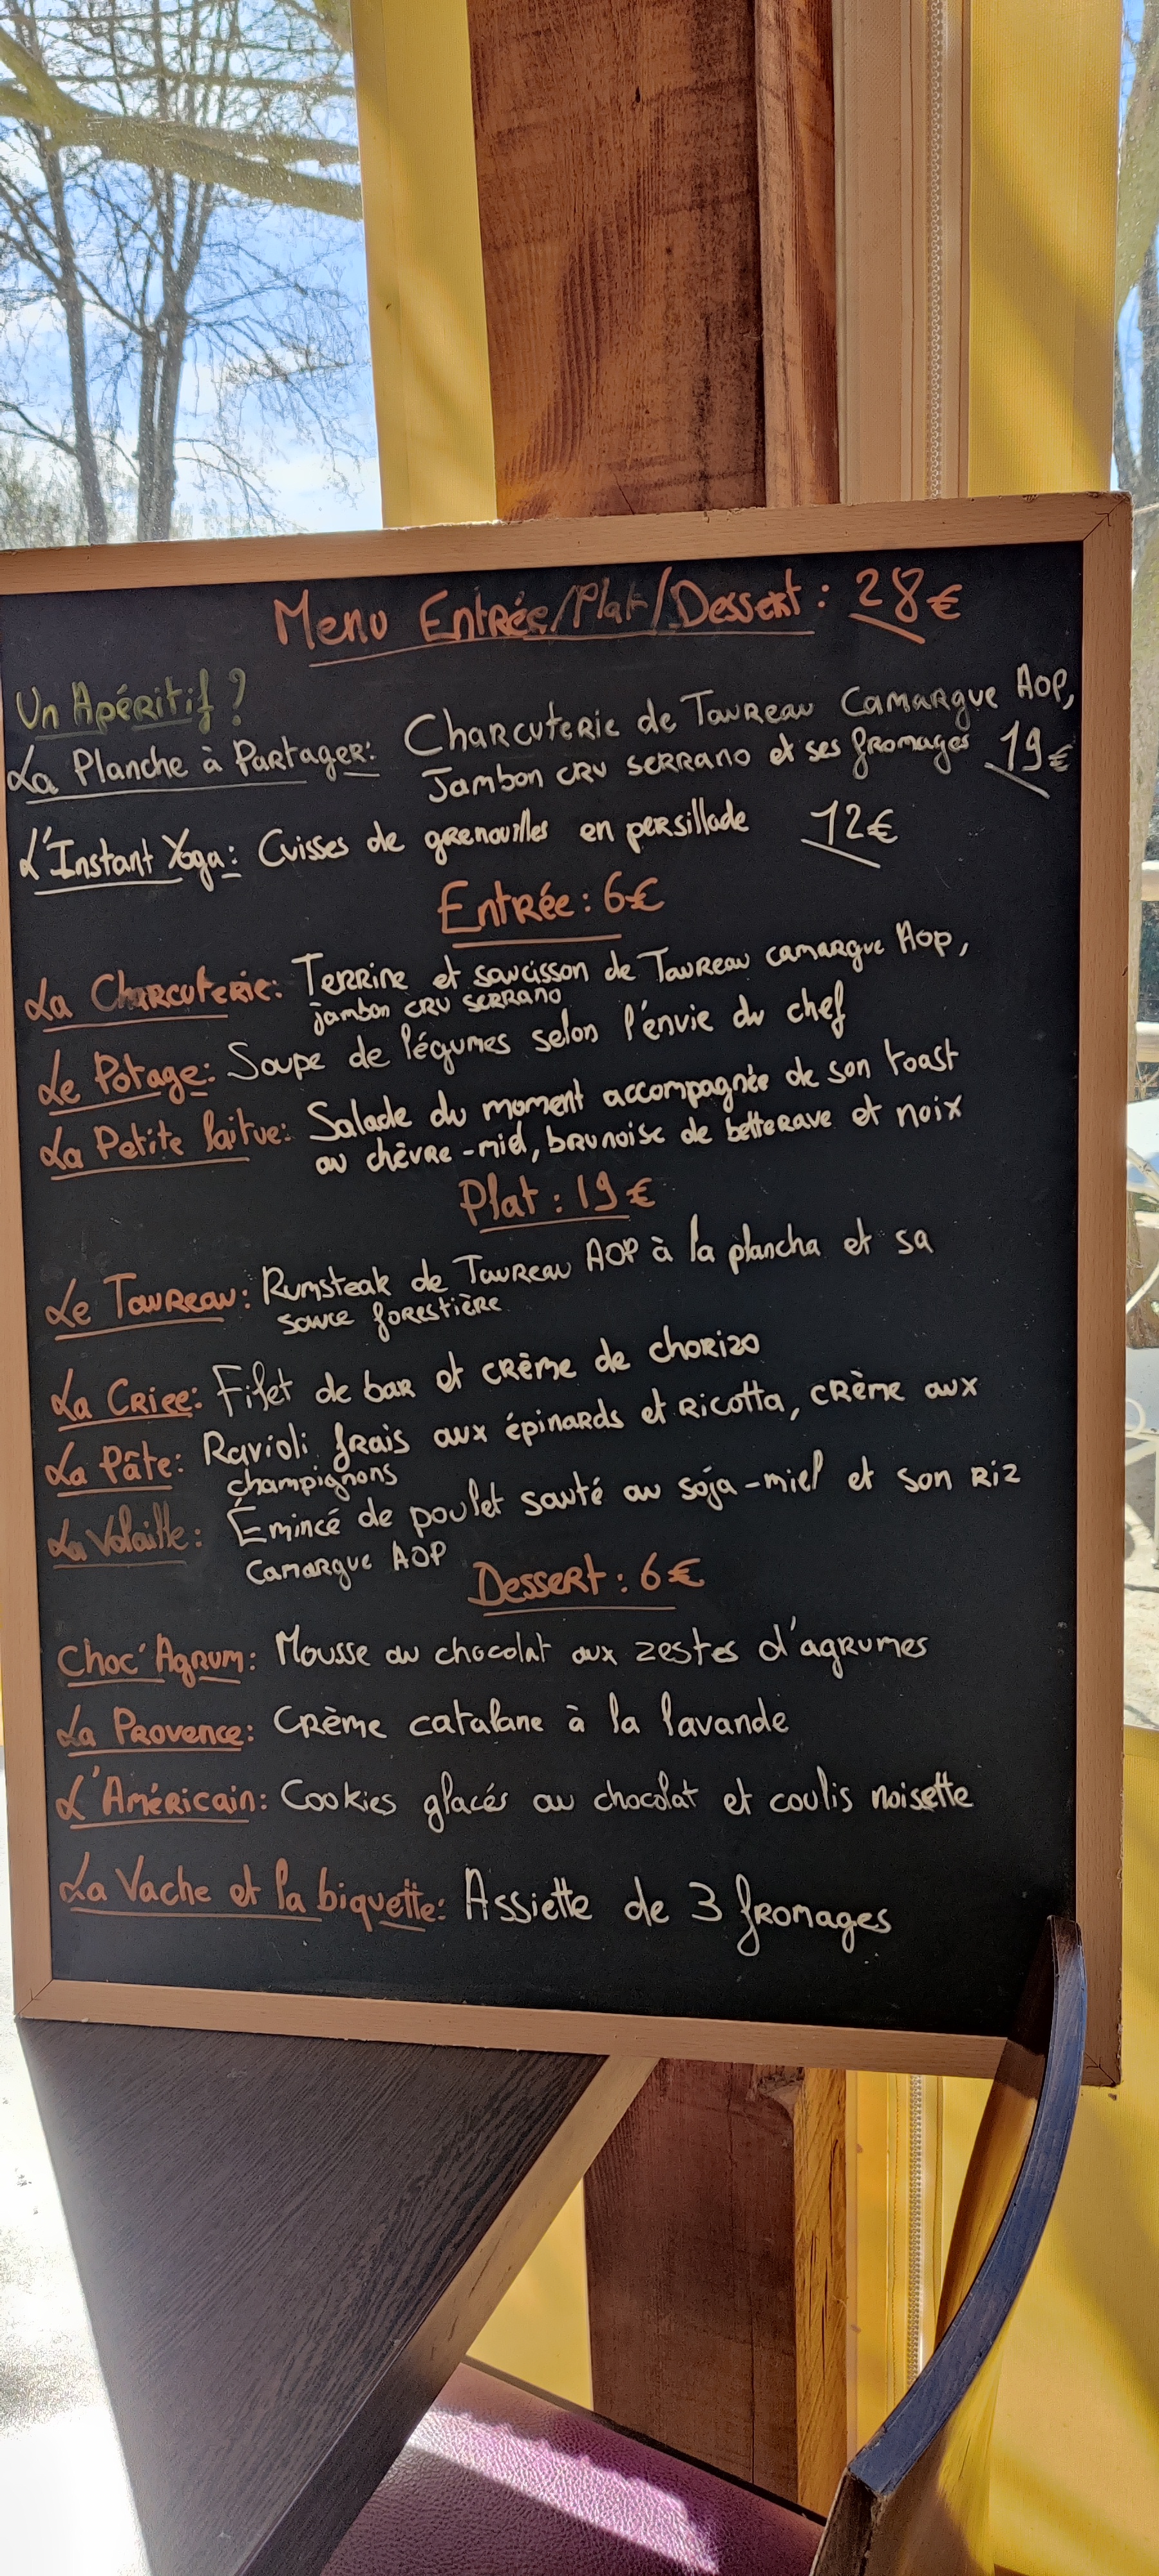 Menu Entrée/Plat/Dessert : 28€
Un Apéritif ?
La Planche à Partager: Charcuterie de Taureau Camargue AOP,
Jambon cru serrano et ses fromages 19€
L'Instant Yoga: Cuisses de grenouilles en persillade 12€
Entrée : 6€
La Charcuterie: Terrine et saucisson de Taureau camargue AOP,
jambon cru serrano
Le Potage: Soupe de légumes selon l'envie du chef
La Petite laitue: Salade du moment accompagnée de son toast
au chèvre-miel, brunoise de betterave et noix
Plat : 19€
Le Taureau: Rumsteak de Taureau AOP à la plancha et sa
sauce forestière
La Criee: Filet de bar et crème de chorizo
La Pâte: Ravioli frais aux épinards et ricotta, crème aux
champignons
La Volaille: Émincé de poulet sauté au soja-miel et son riz
Camargue AOP
Dessert : 6€
Choc'Agrum: Mousse au chocolat aux zestes d'agrumes
La Provence: Crème catalane à la lavande
L'Américain: Cookies glacés au chocolat et coulis noisette
La Vache et la biquette: Assiette de 3 fromages